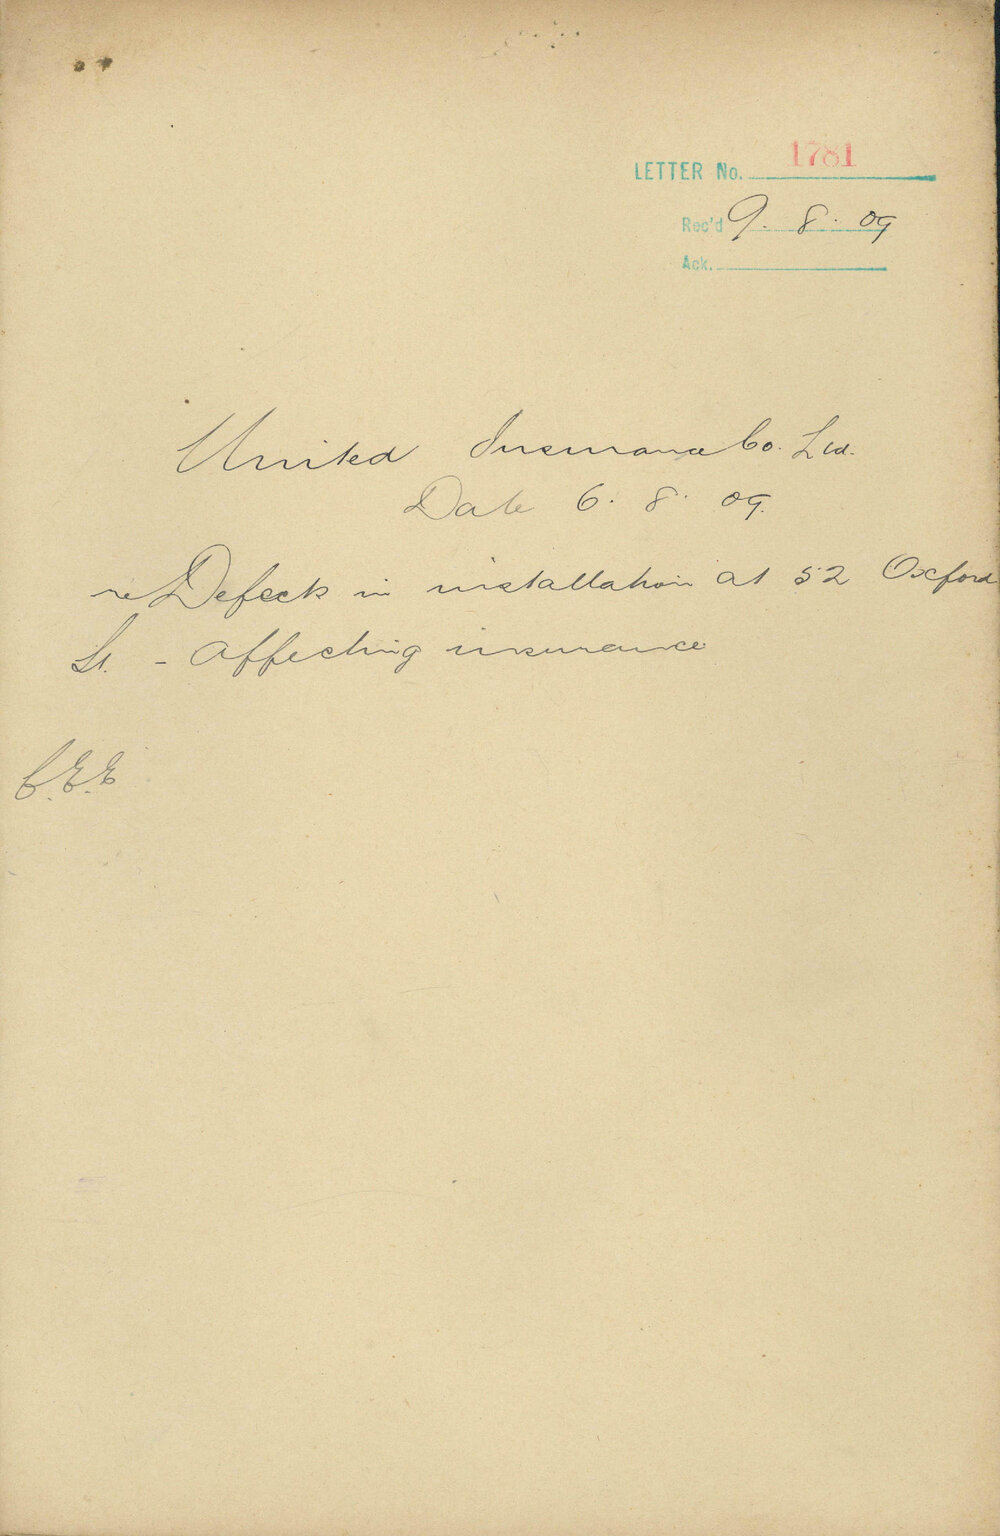 LETTER No. 1781
Rec'd 9. 8. 09
Ack.
United Insurance Co. Ltd.
Date 6. 8. 09.
re Defects in installation at 52 Oxford
St. - affecting insurance
C.E.E